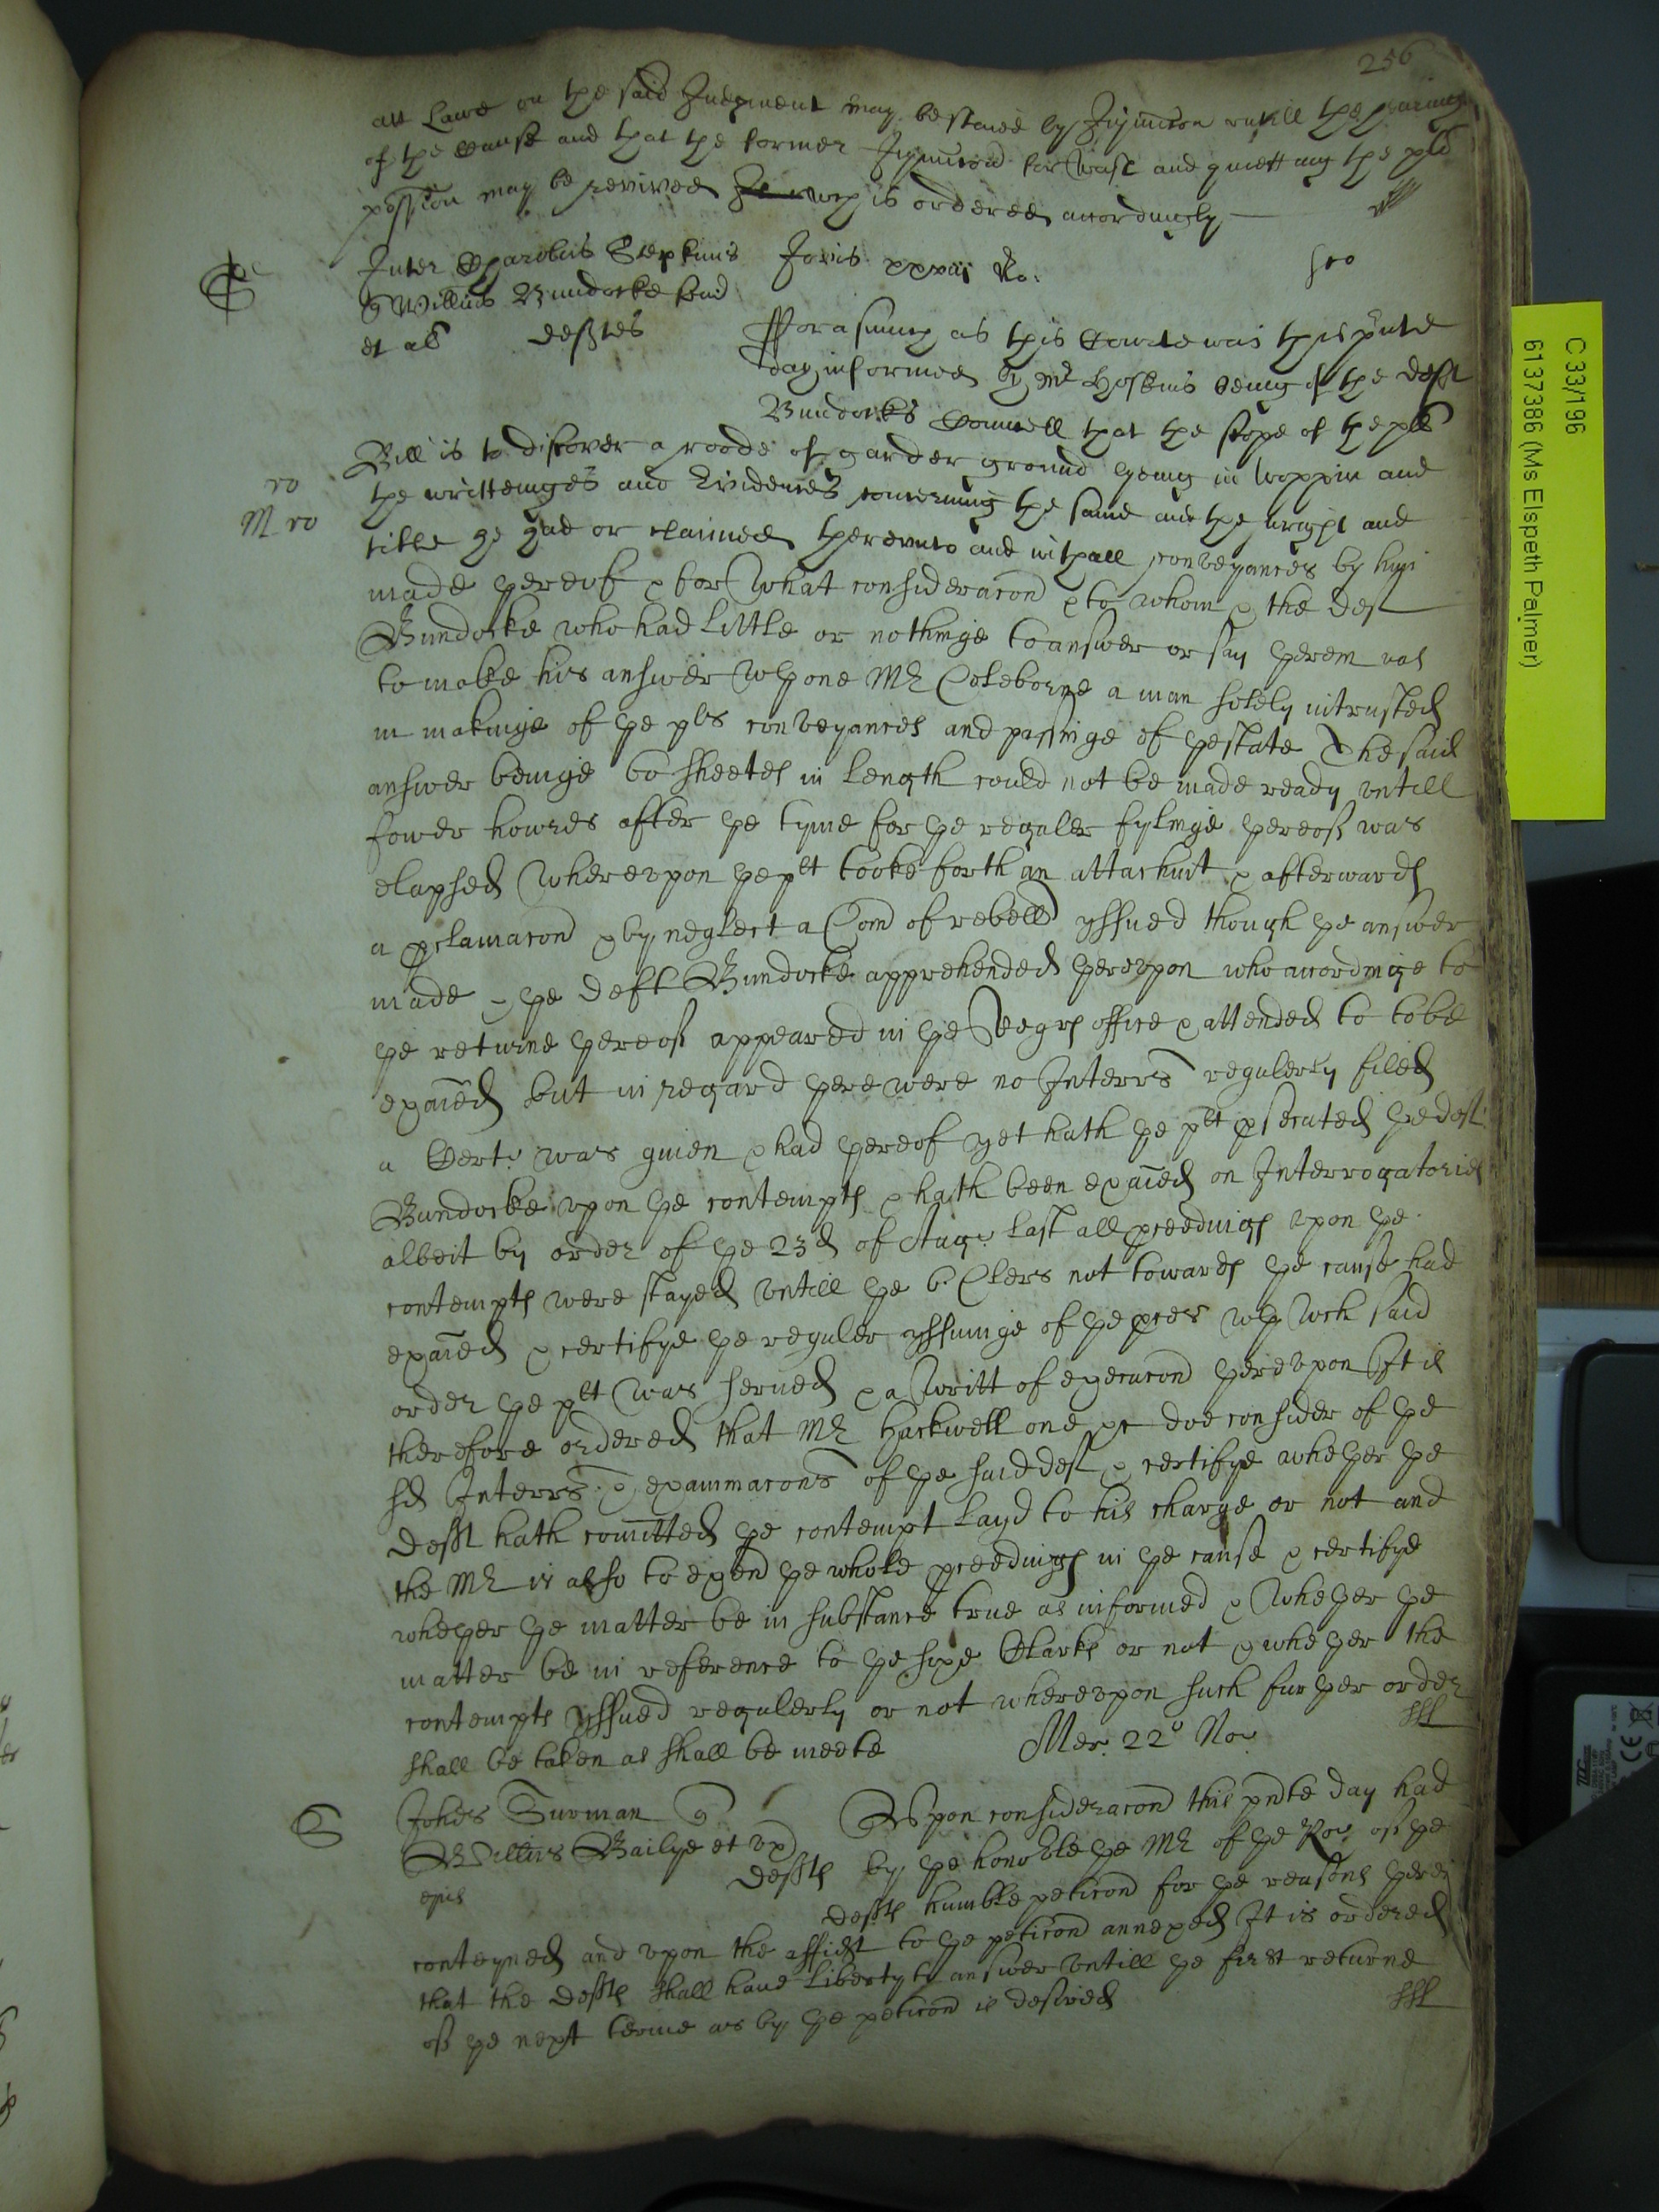 256
att Lawe on the said Judgment may be staied by Injuncon untill the hearing
of the cause and that the former Injuncon for Wast and quietting the plts
possession may be revived wch is ordered accordingly
Inter Carolus Stepkins Jovis xxxiii No:
Willus Bundocke sen
et al deftes
Fforasmuch as this Courte was this pnte
day informed by Mr Hoskins being of the deft
Bundocks Councell that the scope of the plts
Bill is to discover a roode of garden ground lyeing in Woppin and
the writteinges and Evidences concerning the same and the right and
title he had or claimed thereunto and withall conveyances by him
made thereof & for what consideracon & to whom & the deft
Bundocke who had little or nothinge to answer or say therein was
to make his answer wth one Mr Coleborne a man solely intrusted
in makinge of the plts conveyances and passinge of thestate & the said
answer beinge 60 sheetes in length could not be made ready untill
fower howres after the tyme for the reguler fylinge thereof was
elapsed Whereupon the plt tooke forth an attachmt & afterwards
a pclamacon & by neglect a Com of rebell yssued though the answer
made & the deft Bundocke apprehended thereupon who accordinge to
the returne thereof appeared in the Regrs office & attended to to be
exaied but in regard there were no Interrs regulerly filed
a Cert. was given & had thereof yet hath the plt psecuted the deft
Bundocke upon the contempts & hath been exaied on Interrogatories
albeit by order of the 23d of Aug. last all pceedings upon the
contempts were stayed untill the 6 Clers not towards the cause had
exaied & certifye the reguler yssuinge of the pces wth wch said
order the plt was served & a Writt of execucon thereupon It is
therefore ordered that Mr Hackwell one &c doe consider of the
sd Interrs & examinacons of the said deft & certifye whether the
deft hath comitted the contempt layd to his charge or not and
the Mr is also to exend the whole pceedings in the cause & certifye
whether the matter be in substance true as informed & Whether the
matter be in reference to the sixe Clarks or not & whether the
contempts yssued regulerly or not whereupon such further order
shall be taken as shall be meete Mer. 22o Nov
Johes Surman
Willus Bailye et ux
ejus defts
Upon consideracon this pnte day had
by the honoble the Mr of the Ro of the
defts humble peticon for the reasons therein
conteyned and upon the affidt to the peticon annexed It is ordered
that the defts shall have liberty to answer untill the first returne
of the next terme as by the peticon is desired
C 33/196
6137386 (Ms Elspeth Palmer)